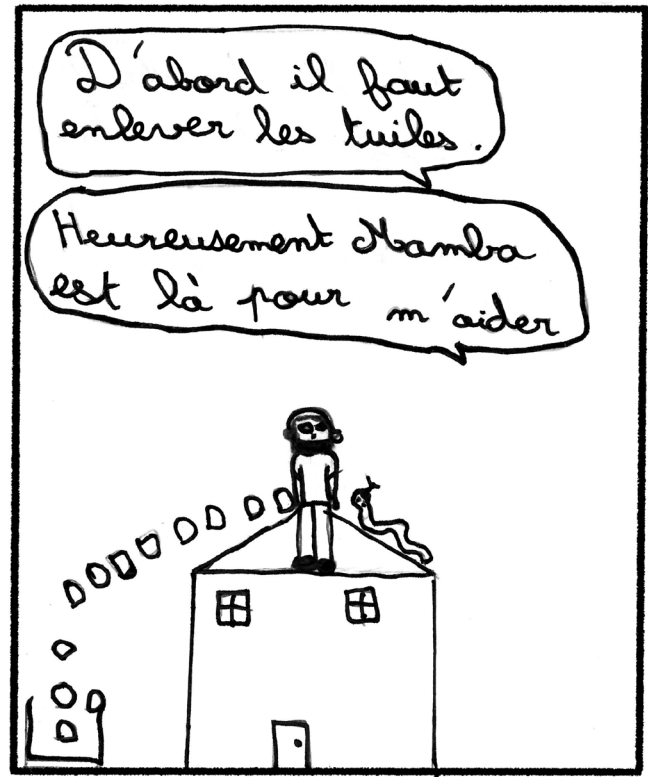 D'abord il faut
enlever les tuiles.
Heureusement Mamba
est là pour m'aider